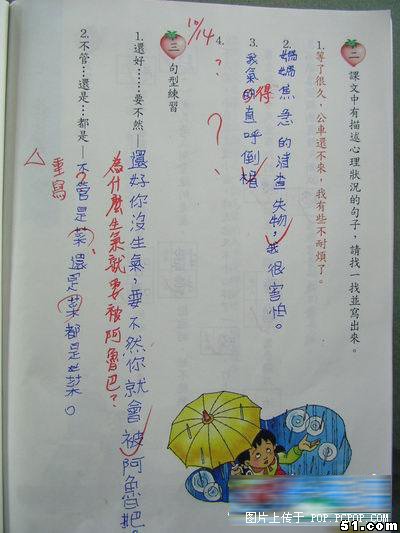 二
課文中有描述心理狀況的句子，請找一找並寫出來。
1.等了很久，公車還不來，我有些不耐煩了。
2.媽媽焦急的清查失物，我很害怕。
3.我氣的直呼倒楣
得
4.
？
？
10/14
三
句型練習
1.還好……要不然—還好你沒生氣，要不然你就會被阿魯巴。
為什麼生氣就要被阿魯巴？
2.不管……還是…都是—不管是菜還是菜都是菜。
重寫
图片上传于 POP.PCPOP.COM
51.com